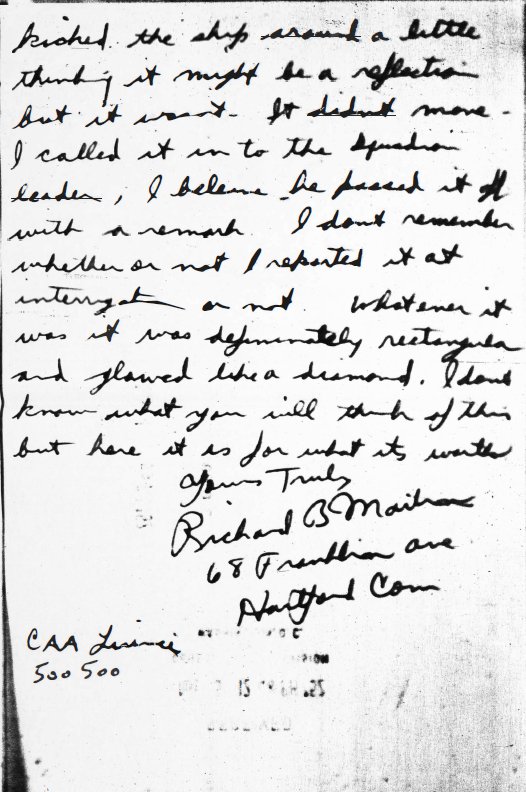 kicked the ship around a little
thinking it might be a reflection
but it wasnt. It didnt move -
I called it in to the Squadron
leader, I beleive he passed it off
with a remark I dont remember
whether or not I reported it at
or not. Whatever it
was it was definately rectangular
and glowed like a diamond. I dont
know what you will think of this
but here it is for what its worth
Yours Truly
Richard B
68 Franklin ave
Hartford Conn
CAA
500 500